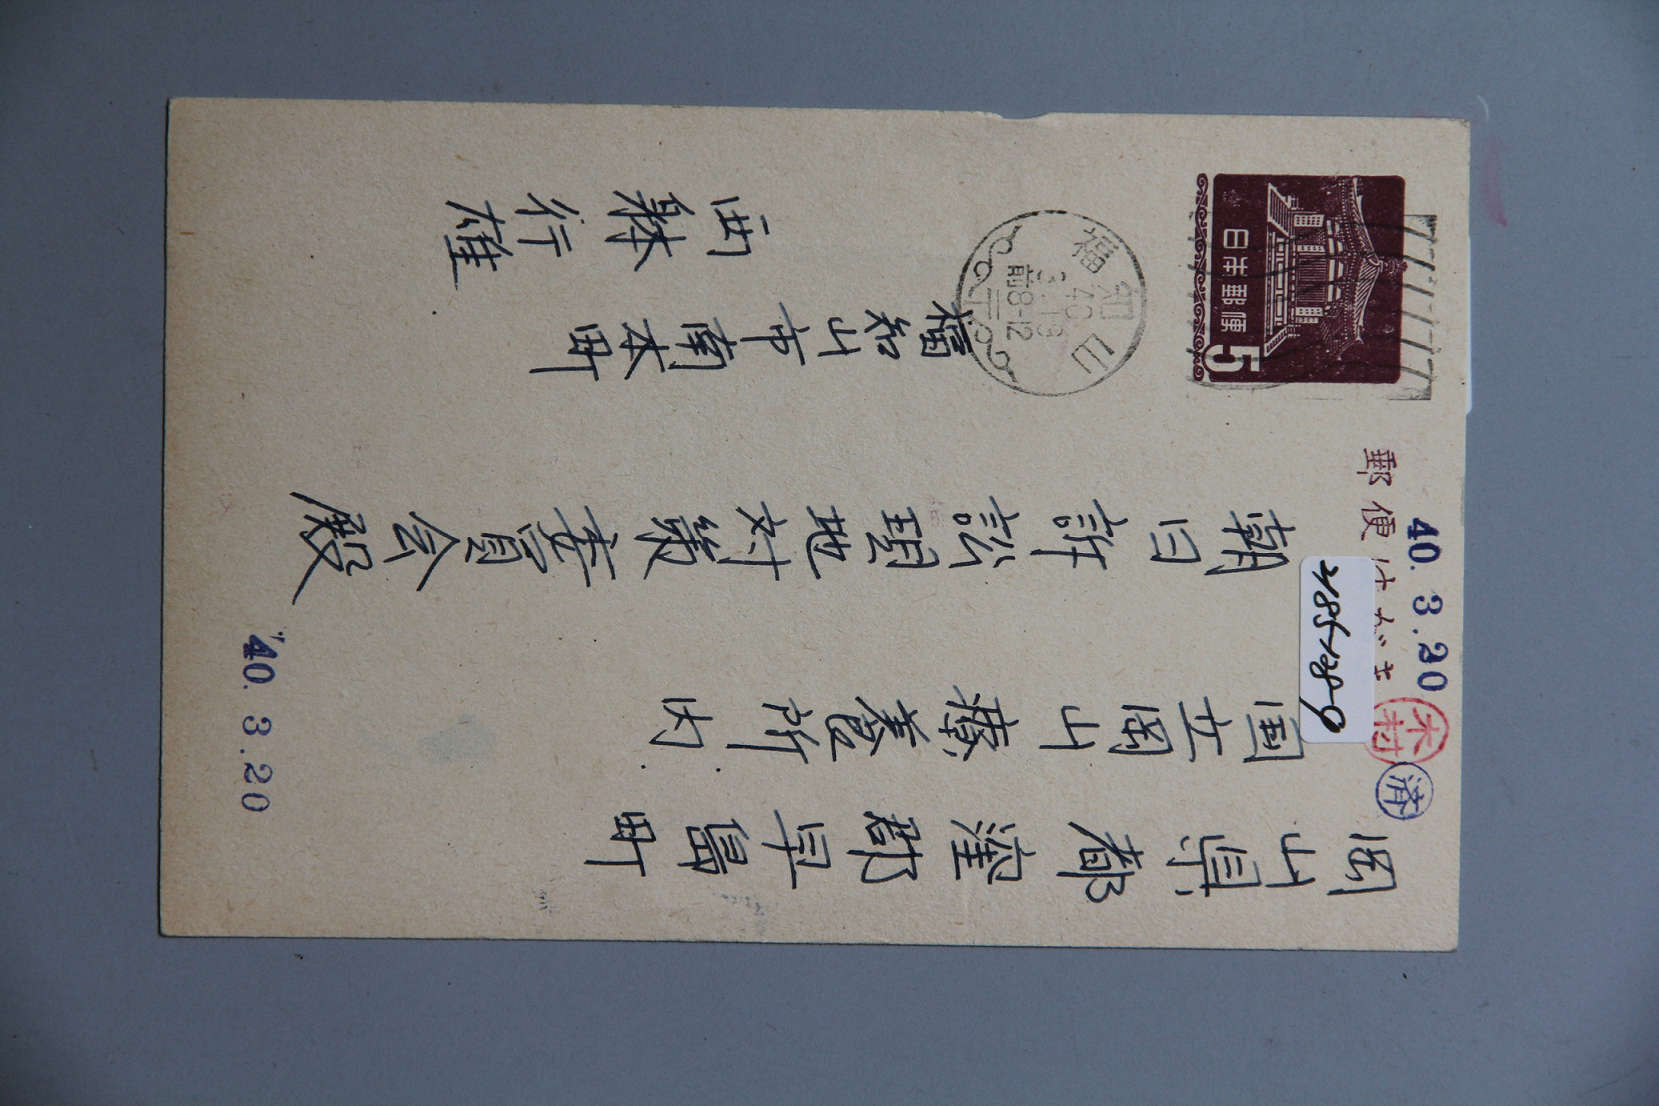 岡山県都窪郡早島町
国立岡山療養所内
朝日訴訟現地対策委員会殿
福知山市南本町
西林行雄
郵便はがき
日本郵便
5
福知山
40
3.19
前8-12
40.3.20
40.3.20
木村
済